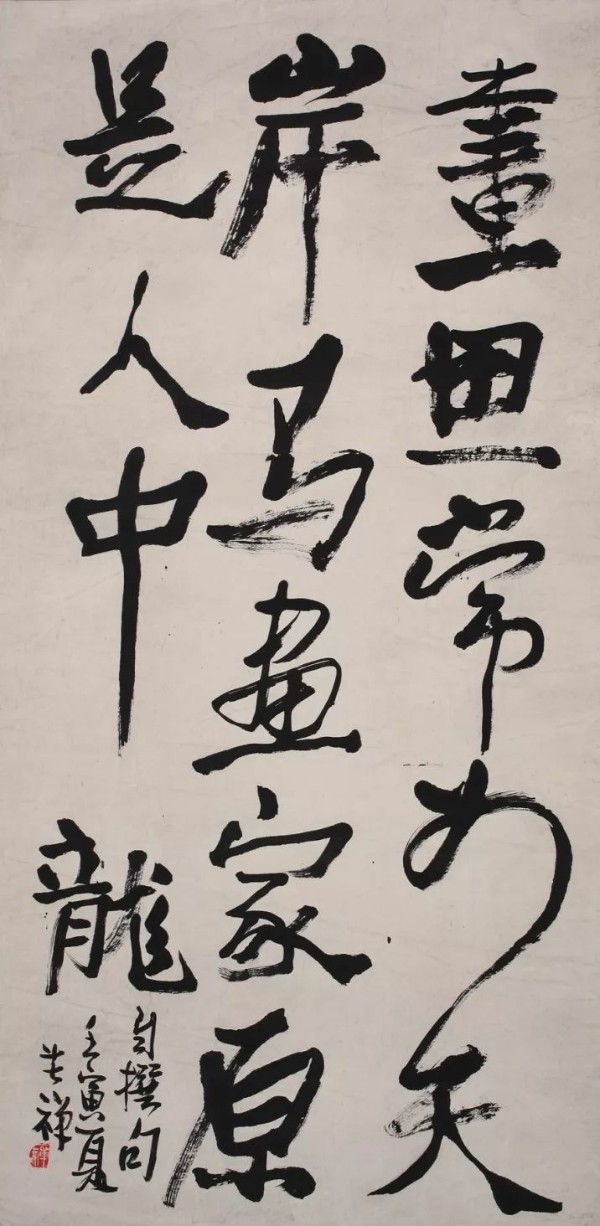 畫思常如天
岸马畫家原
是人中龍
自撰句
壬寅夏
苦禅